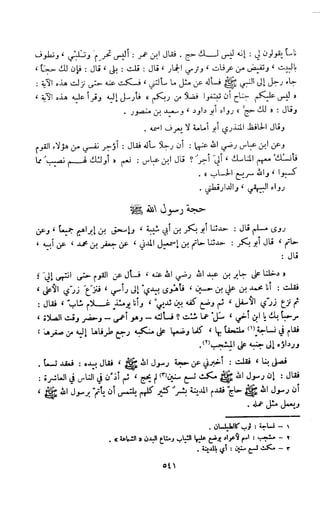 ناساً يقولون لي : إنه ليس لك حج . فقال ابن عمر : أليس تحرم وتلبي ، وتطوف
بالبيت ، وتفيض من عرفات ، وترمي الجمار ، قال : قلت : بلى ، قال : فإن لك حجاً ،
جاء رجل إلى النبي ﷺ فسأله عن مثل ما سألتني ، فسكت عنه حتى نزلت هذه الآية :
« ليس عليكم جناح أن تبتغوا فضلاً من ربكم » فأرسل إليه وقرأ عليه هذه الآية ،
وقال : « لك حج » ، رواه أبو داود ، وسعيد بن منصور .
وقال الحافظ المنذري أبو أمامة لا يعرف اسمه .
وعن ابن عباس رضي الله عنهما : أن رجلاً سأله فقال : أؤجر نفسي من هؤلاء القوم
فأنسك معهم المناسك ، أليَ أجر ؟ قال ابن عباس : نعم « أولئك لهم نصيب مما
كسبوا ، والله سريع الحساب » .
رواه البيهقي ، والدارقطني .
حجة رسول الله ﷺ
روى مسلم قال : حدثنا أبو بكر بن أبي شيبة ، وإسحق بن إبراهيم جميعاً ، وعن
حاتم ، قال أبو بكر : حدثنا حاتم بن إسمعيل المدني ، عن جعفر بن محمد ، عن أبيه ،
قال :
« دخلنا على جابر بن عبد الله رضي الله عنه ، فسأل عن القوم حتى انتهى إليَّ ؛
فقلت : أنا محمد بن علي بن حسين ، فأهوى بيده إلى رأسي ، فنزع زرّي الأعلى ،
ثم نزع زرّي الأسفل ، ثم وضع كفه بين ثدييّ ، وأنا يومئذ غلام شاب ، فقال :
مرحباً بك يا ابن أخي ، سل عما شئت ؟ فسألته – وهو أعمى – وحضر وقت الصلاة ،
فقام في نساجة (١) ملتحفاً بها ، كلما وضعها على منكبيه رجع طرفاها إليه من صغرها ؛
ورداؤه إلى جنبه على المشجب (٢) .
فصلى بنا ، فقلت : أخبرني عن حجة رسول الله ﷺ ، فقال بيده : فعقد تسعاً .
فقال : إن رسول الله ﷺ مكث تسع سنين (٣) لم يحج ، ثم أذّن في الناس في العاشرة :
أن رسول الله ﷺ حاج فقدم المدينة بشر كثير كلهم يلتمس أن يأتم برسول الله ﷺ ،
ويعمل مثل عمله .
١ – نساجة : ثوب كالطيلسان .
٢ – مشجب : اسم لأعواد يوضع عليها الثياب ومتاع البدن « الشماعة » .
٣ – مكث تسع سنين : أي بالمدينة .
٥٤١